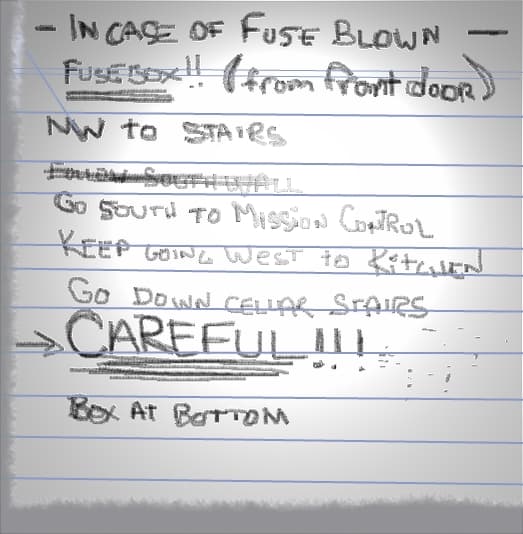 - IN CASE OF FUSE BLOWN -
FUSEBOX!! (from front door)
NW to STAIRS
FOLLOW SOUTH WALL
GO SOUTH TO MISSION CONTROL
KEEP GOING WEST to KITCHEN
GO DOWN CELLAR STAIRS
→ CAREFUL!!!
BOX AT BOTTOM